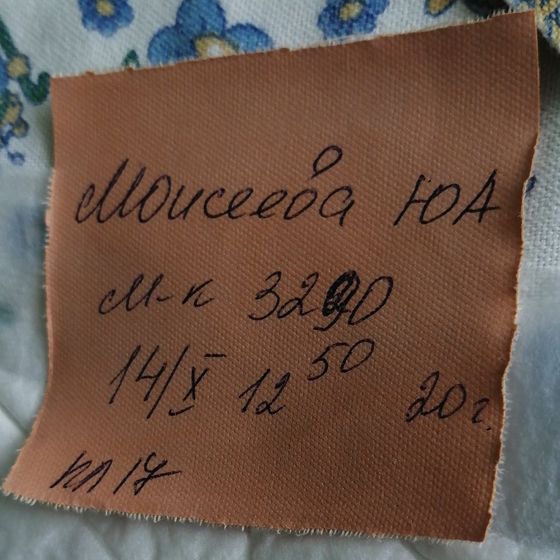 Моисеева ЮА
м-к 3290
14/X 12 50 20 г.
кл 17